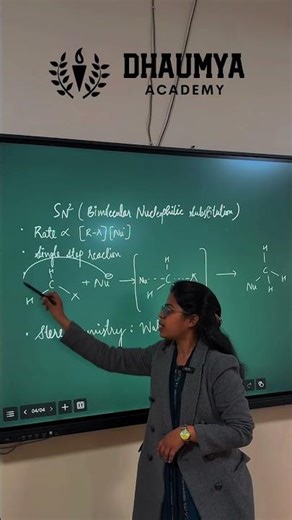 DHAUMYA
ACADEMY
SN² (Bimolecular Nucleophilic substitution)
• Rate ∝ [R-X][Nu⁻]
• single step reaction
H H H
C + Nu⁻ → Nu C X → C
H X H Nu H
• Stereochemistry : Wal
04/04